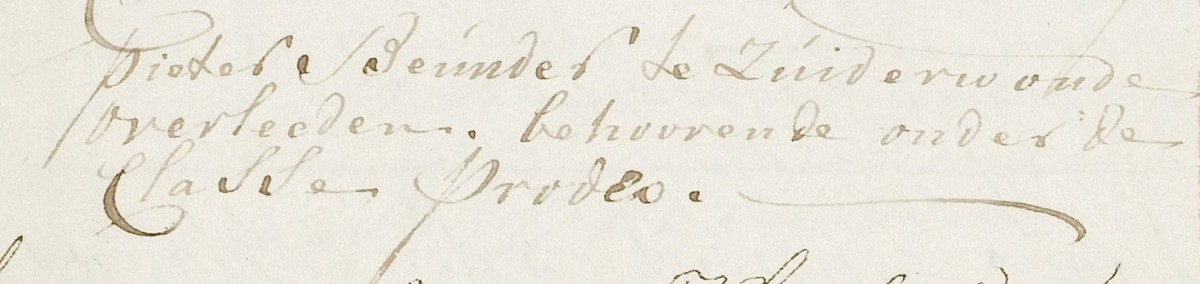 Pieter Beunder te Zuiderwoude
overleeden. behoorende onder de
Classe Prodeo.